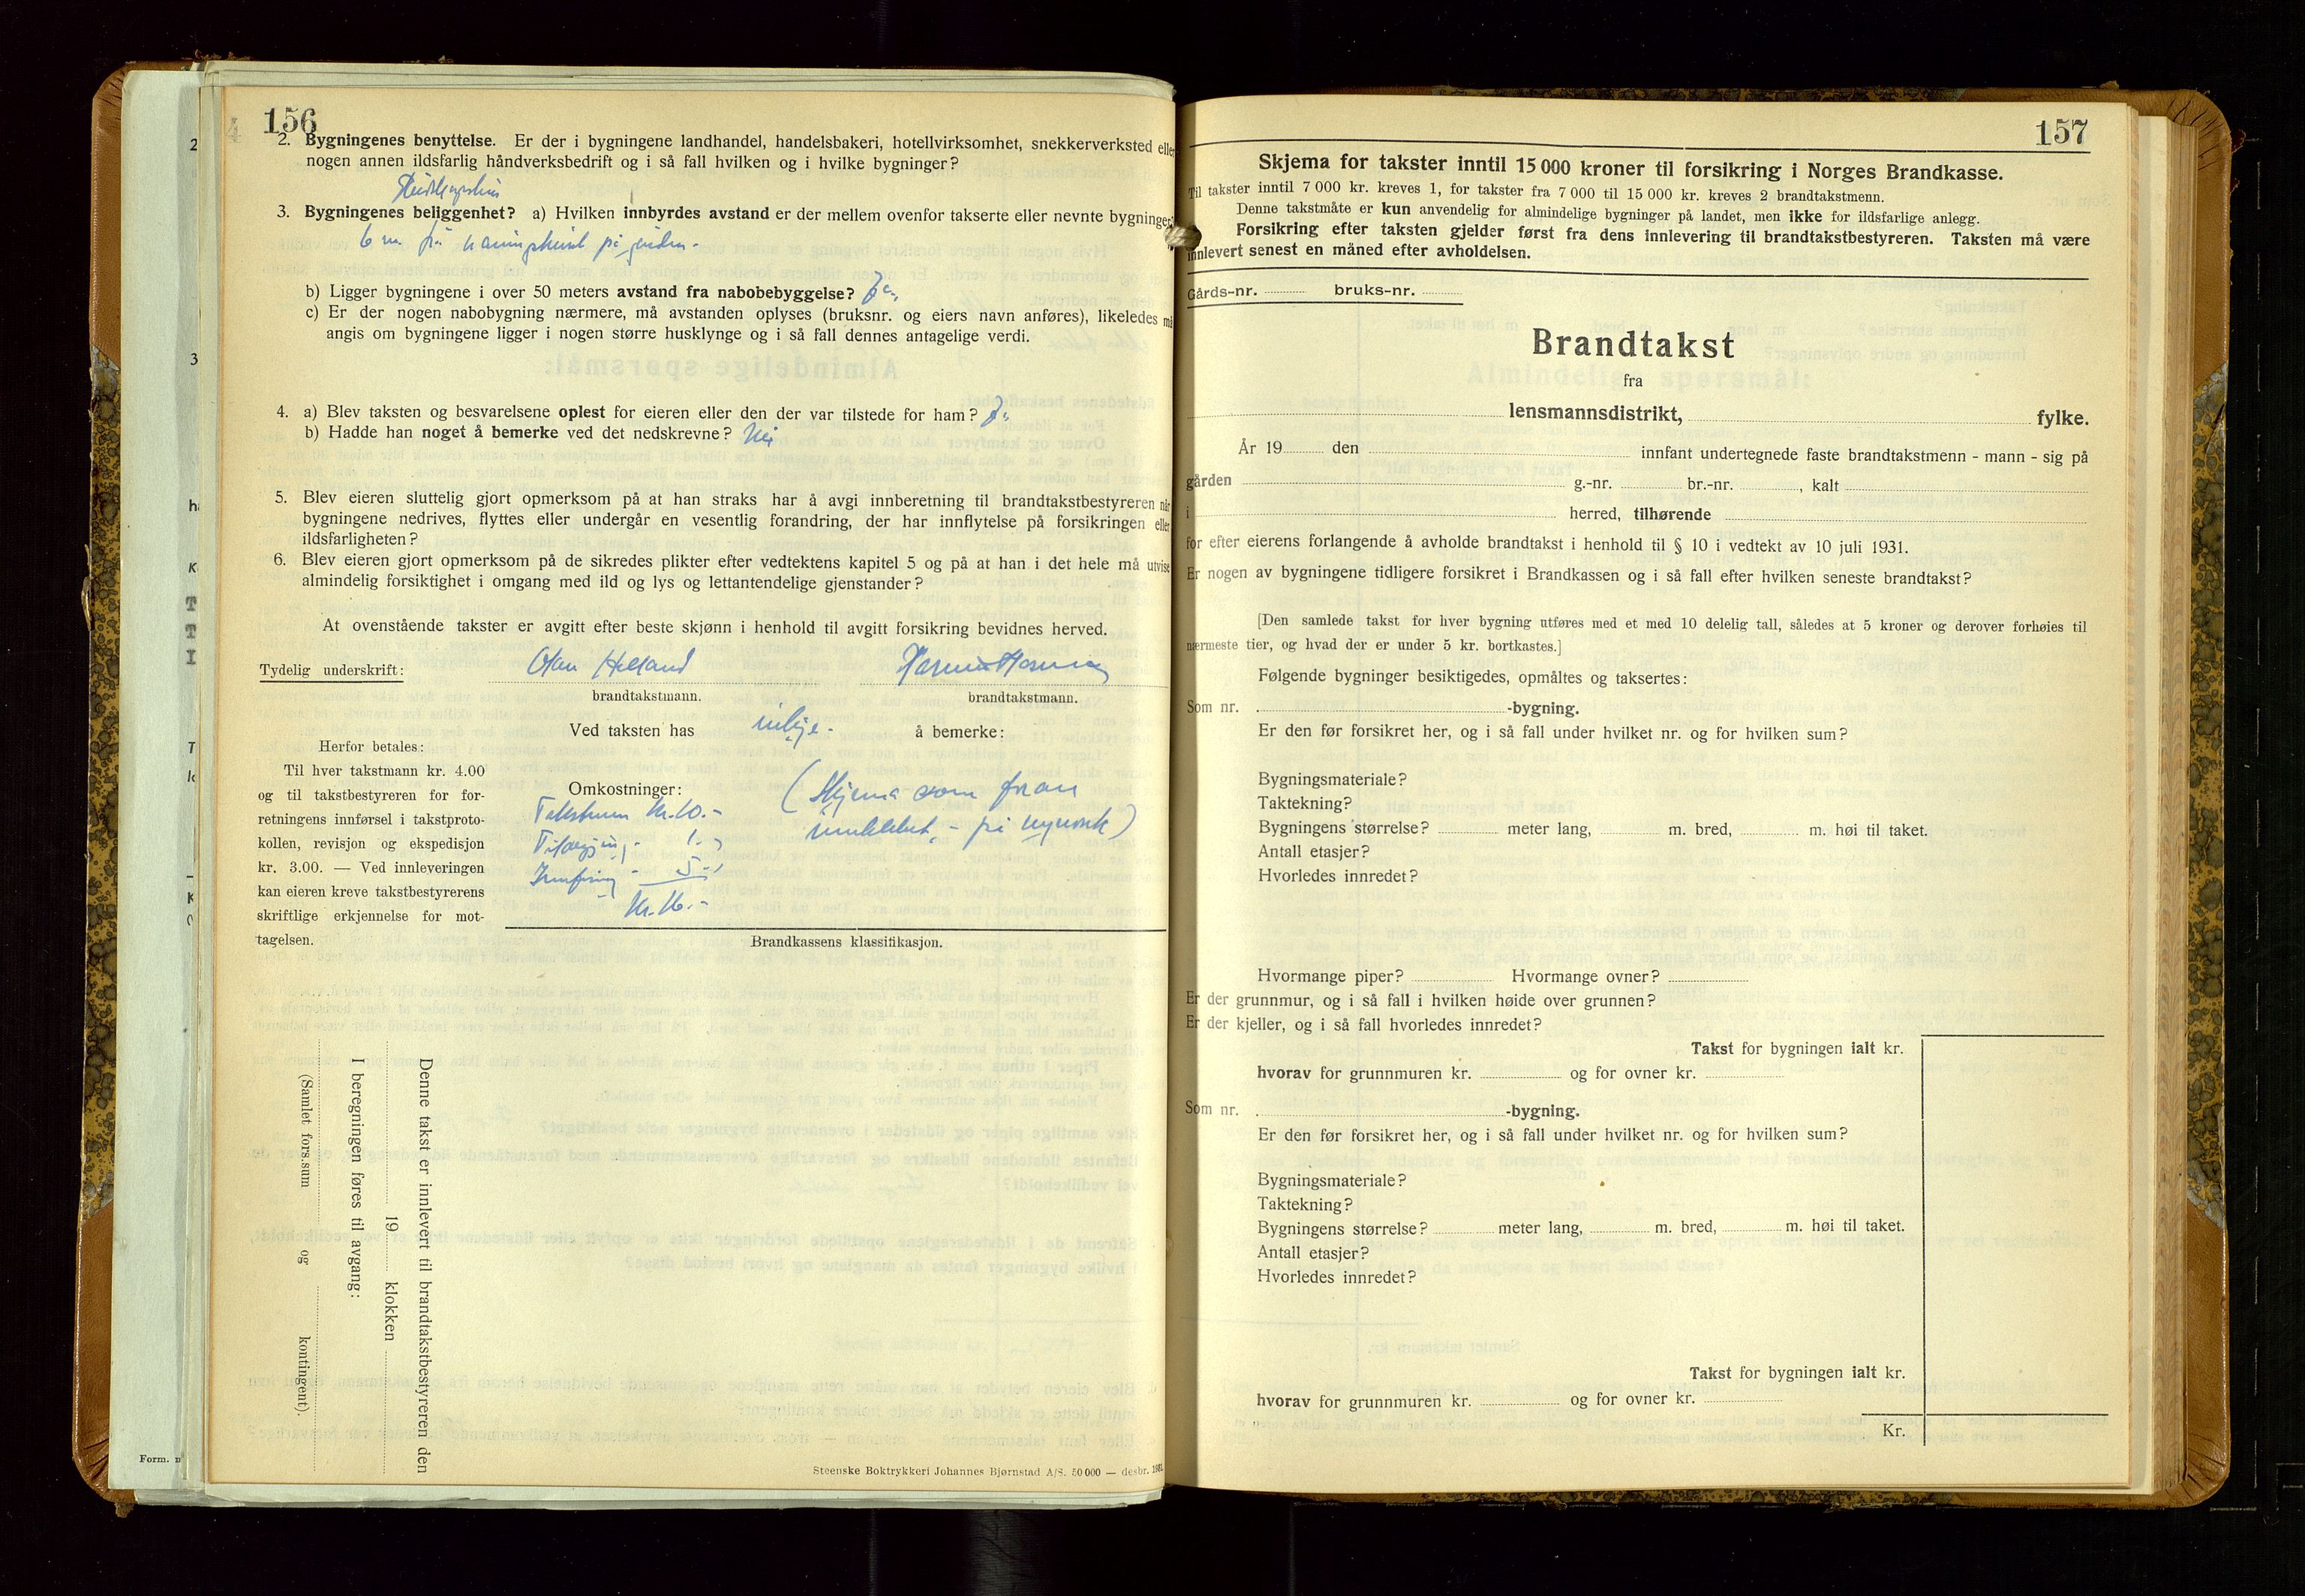 156
2. Bygningenes benyttelse. Er der i bygningene landhandel, handelsbakeri, hotellvirksomhet, snekkerverksted eller
nogen annen ildsfarlig håndverksbedrift og i så fall hvilken og i hvilke bygninger?
3. Bygningenes beliggenhet? a) Hvilken innbyrdes avstand er der mellem ovenfor takserte eller nevnte bygninger?
6 m. frå
b) Ligger bygningene i over 50 meters avstand fra nabobebyggelse? Ja.
c) Er der nogen nabobygning nærmere, må avstanden oplyses (bruksnr. og eiers navn anføres), likeledes må
angis om bygningene ligger i nogen større husklynge og i så fall dennes antagelige verdi.
4. a) Blev taksten og besvarelsene oplest for eieren eller den der var tilstede for ham? Ja
b) Hadde han noget å bemerke ved det nedskrevne? Nei
5. Blev eieren sluttelig gjort opmerksom på at han straks har å avgi innberetning til brandtakstbestyreren når
bygningene nedrives, flyttes eller undergår en vesentlig forandring, der har innflytelse på forsikringen eller
ildsfarligheten?
6. Blev eieren gjort opmerksom på de sikredes plikter efter vedtektens kapitel 5 og på at han i det hele må utvise
almindelig forsiktighet i omgang med ild og lys og lettantendelige gjenstander?
At ovenstående takster er avgitt efter beste skjønn i henhold til avgitt forsikring bevidnes herved.
Tydelig underskrift: Olav Helland
brandtakstmann. brandtakstmann.
Ved taksten has inkje - å bemerke:
Herfor betales:
Til hver takstmann kr. 4.00
og til takstbestyreren for for-
retningens innførsel i takstproto-
kollen, revisjon og ekspedisjon
kr. 3.00. — Ved innleveringen
kan eieren kreve takstbestyrerens
skriftlige erkjennelse for mot-
tagelsen.
Omkostninger:
Kr. 10.-
1.-
Innføring - 5.-
Kr. 16.-
(Skjema som
på nynorsk)
Brandkassens klassifikasjon.
Denne takst er innlevert til brandtakstbestyreren den
19 klokken
I beregningen føres til avgang:
(Samlet fors.sum og kontingent).
Steenske Boktrykkeri Johannes Bjørnstad A/S. 50 000 — desbr. 1931.
Form. n
157
Skjema for takster inntil 15 000 kroner til forsikring i Norges Brandkasse.
Til takster inntil 7 000 kr. kreves 1, for takster fra 7 000 til 15 000 kr. kreves 2 brandtakstmenn.
Denne takstmåte er kun anvendelig for almindelige bygninger på landet, men ikke for ildsfarlige anlegg.
Forsikring efter taksten gjelder først fra dens innlevering til brandtakstbestyreren. Taksten må være
innlevert senest en måned efter avholdelsen.
Gårds-nr. bruks-nr.
Brandtakst
fra
lensmannsdistrikt, fylke.
År 19 den innfant undertegnede faste brandtakstmenn - mann - sig på
gården g.-nr. br.-nr. , kalt
i herred, tilhørende
for efter eierens forlangende å avholde brandtakst i henhold til § 10 i vedtekt av 10 juli 1931.
Er nogen av bygningene tidligere forsikret i Brandkassen og i så fall efter hvilken seneste brandtakst?
[Den samlede takst for hver bygning utføres med et med 10 delelig tall, således at 5 kroner og derover forhøies til
nærmeste tier, og hvad der er under 5 kr. bortkastes.]
Følgende bygninger besiktigedes, opmåltes og taksertes:
Som nr. -bygning.
Er den før forsikret her, og i så fall under hvilket nr. og for hvilken sum?
Bygningsmateriale?
Taktekning?
Bygningens størrelse? meter lang, m. bred, m. høi til taket.
Antall etasjer?
Hvorledes innredet?
Hvormange piper? Hvormange ovner?
Er der grunnmur, og i så fall i hvilken høide over grunnen?
Er der kjeller, og i så fall hvorledes innredet?
Takst for bygningen ialt kr.
hvorav for grunnmuren kr. og for ovner kr.
Som nr. -bygning.
Er den før forsikret her, og i så fall under hvilket nr. og for hvilken sum?
Bygningsmateriale?
Taktekning?
Bygningens størrelse? meter lang, m. bred, m. høi til taket.
Antall etasjer?
Hvorledes innredet?
Takst for bygningen ialt kr.
hvorav for grunnmuren kr. og for ovner kr.
Kr.